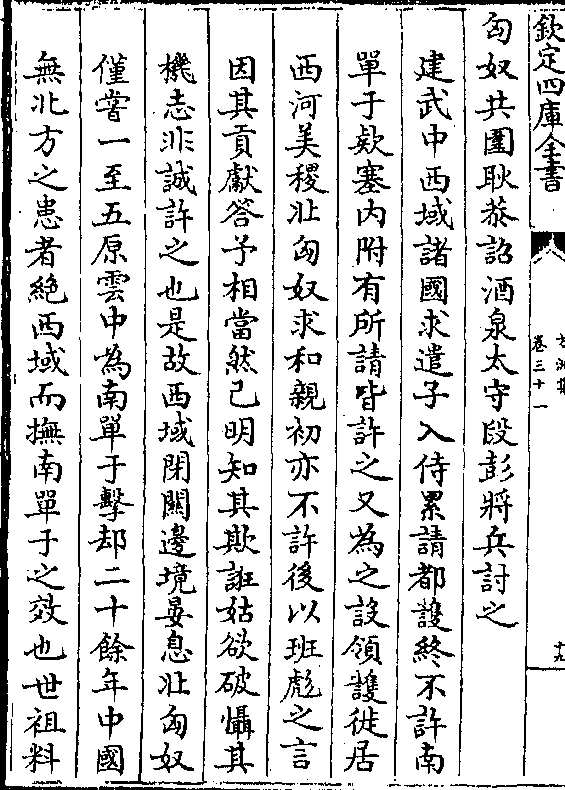 欽定四庫全書
卷三十一
十九
匈奴共圍耿恭詔酒泉太守段彭將兵討之
建武中西域諸國求遣子入侍累請都護終不許南
單于欵塞内附有所請皆許之又為之設領護徙居
西河美稷北匈奴求和親初亦不許後以班彪之言
因其貢獻答予相當然已明知其欺誑姑欲破懾其
機志非誠許之也是故西域閉關邊境晏息北匈奴
僅嘗一至五原雲中為南單于擊却二十餘年中國
無北方之患者絶西域而撫南單于之效也世祖料